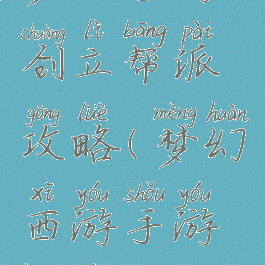 chuàng lì bāng pài
创立帮派
gōng lüè mèng huàn
攻略(梦幻
xī yóu shǒu yóu
西游手游